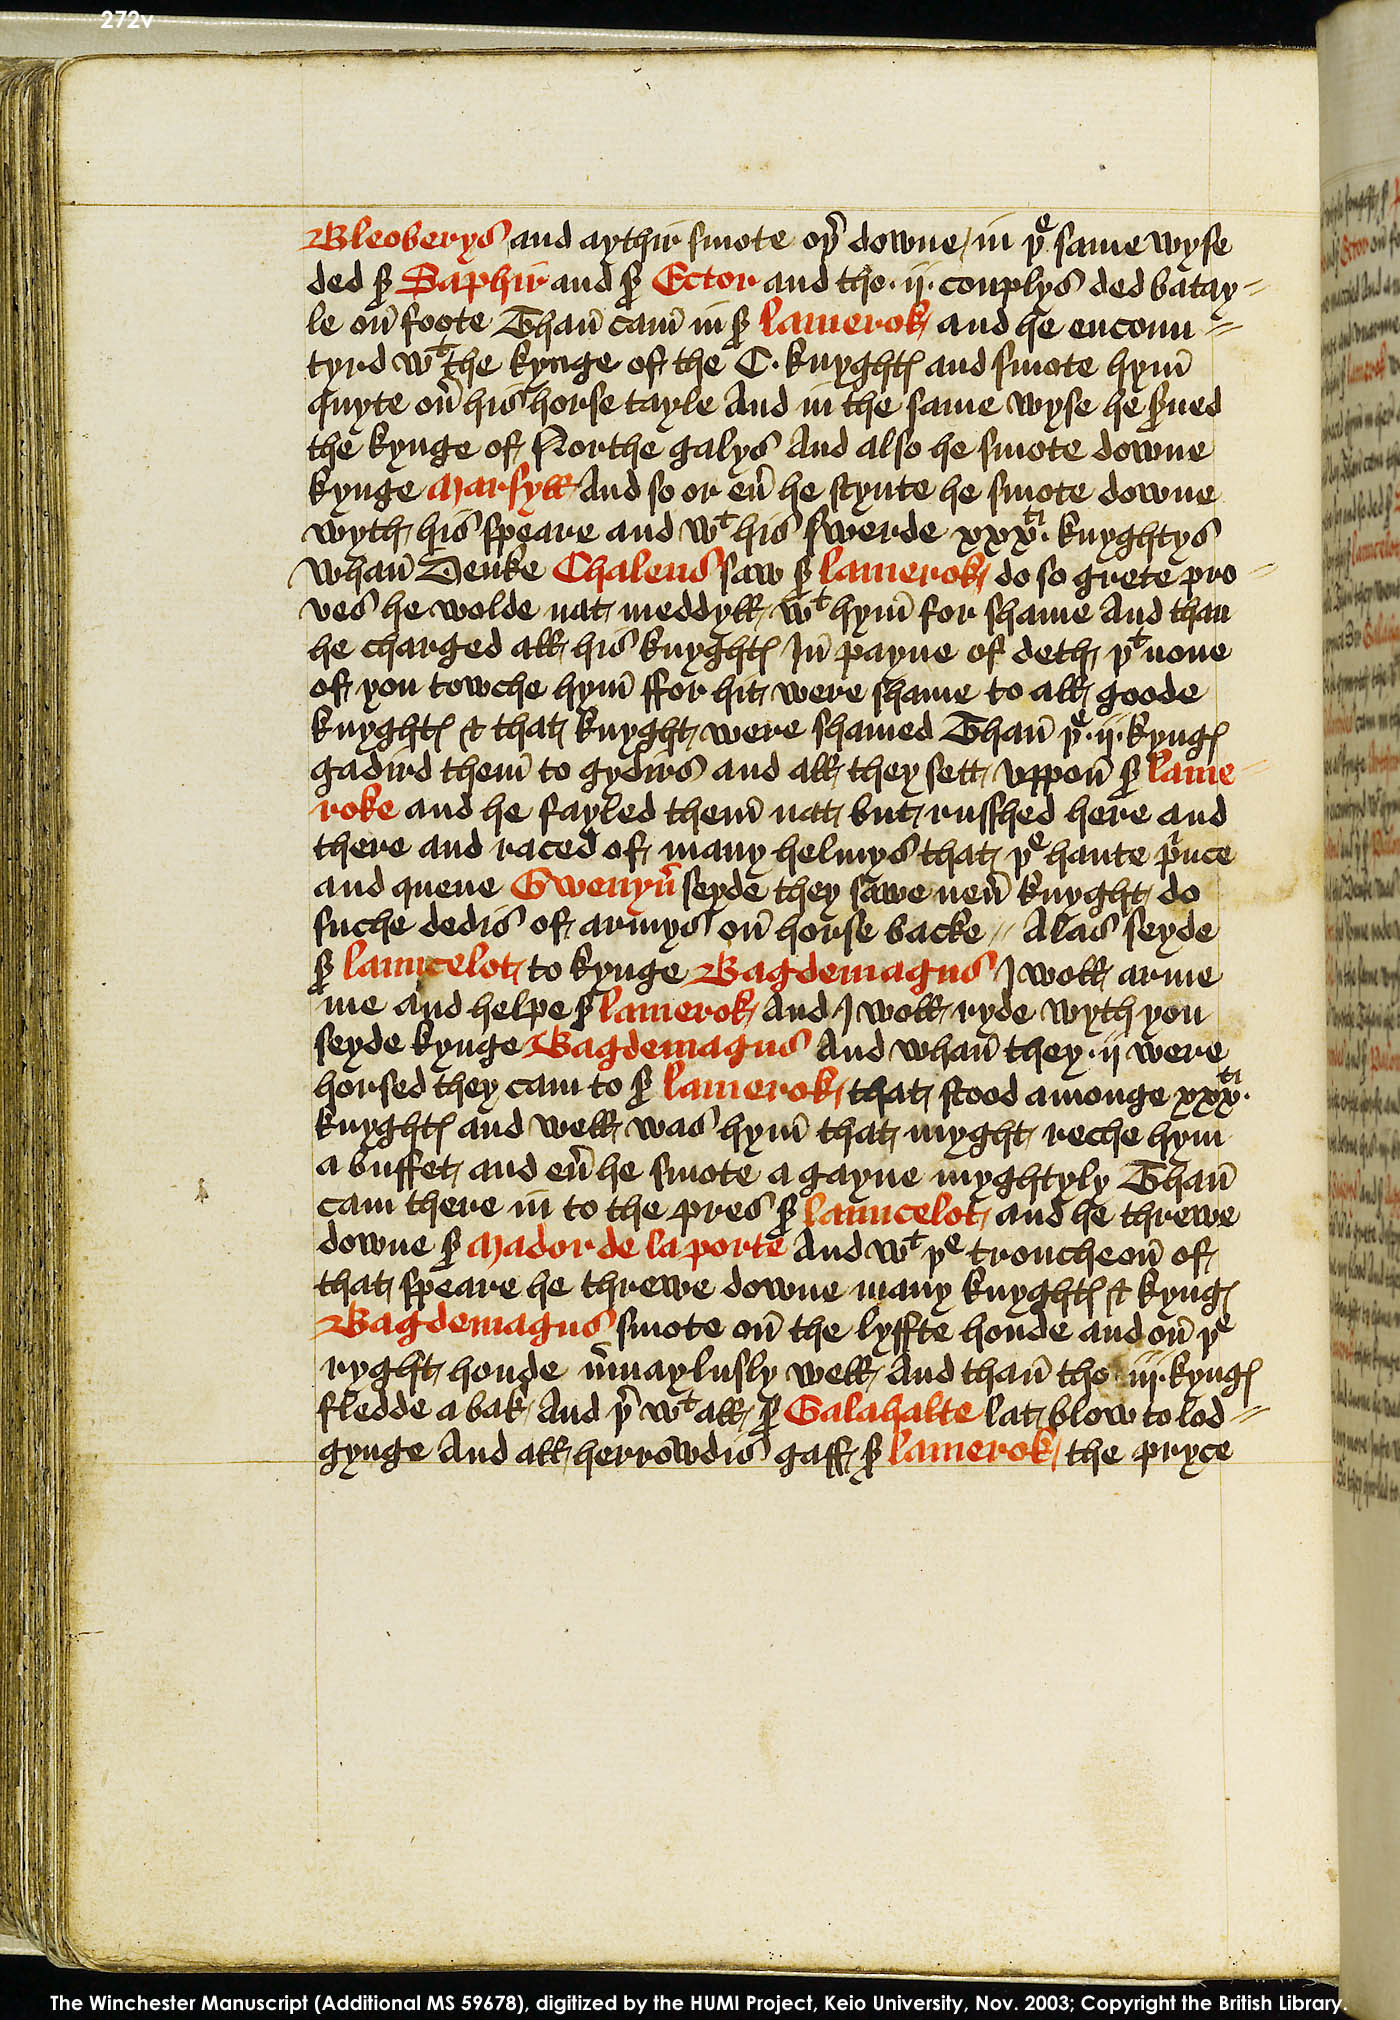 272v
Bleoberys and aythir smote oþ̉ downe / in þͤ same wyse
ded ẜ Saphir and ẜ Ector and tho · ij · couplys ded batay=
le oñ foote Thañ cam̃ in ẜ lamerok and he encoun=
tyrd wᵗ the kynge of the C · knyghtꝭ and smote hym̃
quyte oñ his horse tayle And in the same wyse he ẜued
the kynge of Northe galys And also he smote downe
kynge Marsyll And so or eũ he stynte he smote downe
wyth his speare and wᵗ his swerde xxxᵗⁱ · knyghtys
whañ Deuke Chaleus saw ẜ lamerok do so grete pro=
ves he wolde nat meddyll wᵗ hym̃ for shame And than
he charged all his knyghtꝭ Jñ payne of deth þᵗ none
of you towche hym̃ ffor hit were shame to all goode
knyghtꝭ & that knyght were shamed Thañ þͤ · ij · kyngꝭ
gadird them̃ to gydirs and all they sett vppoñ ẜ lame=
roke and he fayled them̃ nat but russhed here and
there and raced of many helmys that þͤ haute pᷓnce
and quene Gwenyũ seyde they sawe neũ knyght do
suche dedis of armys oñ horse backe // Alas seyde
ẜ launcelot to kynge Bagdemagus J woll arme
me And helpe ẜ lamerok And J woll ryde wyth you
seyde kynge Bagdemagus And whañ they · ij were
horsed they cam to ẜ lamerok that stood amonge xxxᵗⁱ ·
knyghtꝭ and well was hym̃ that myght reche hym
a buffet and eũ he smote a gayne myghtyly Thañ
cam there in to the pres ẜ launcelot and he threwe
downe ẜ Mador de la porte And wᵗ þͤ troncheoñ of
that speare he threwe downe many knyghtꝭ & kyng
Bagdemagus smote oñ the lyffte honde and oñ þͤ
ryght honde m̉uaylusly well And thañ tho iij · kyngꝭ
fledde a bak And þ̉ wᵗ all ẜ Galahalte lat blow to lod=
gynge And all herrowdis gaff ẜ lamerok the pryce
The Winchester Manuscript (Additional MS 59678), digitized by the HUMI Project, Keio University, Nov. 2003; Copyright the British Library.